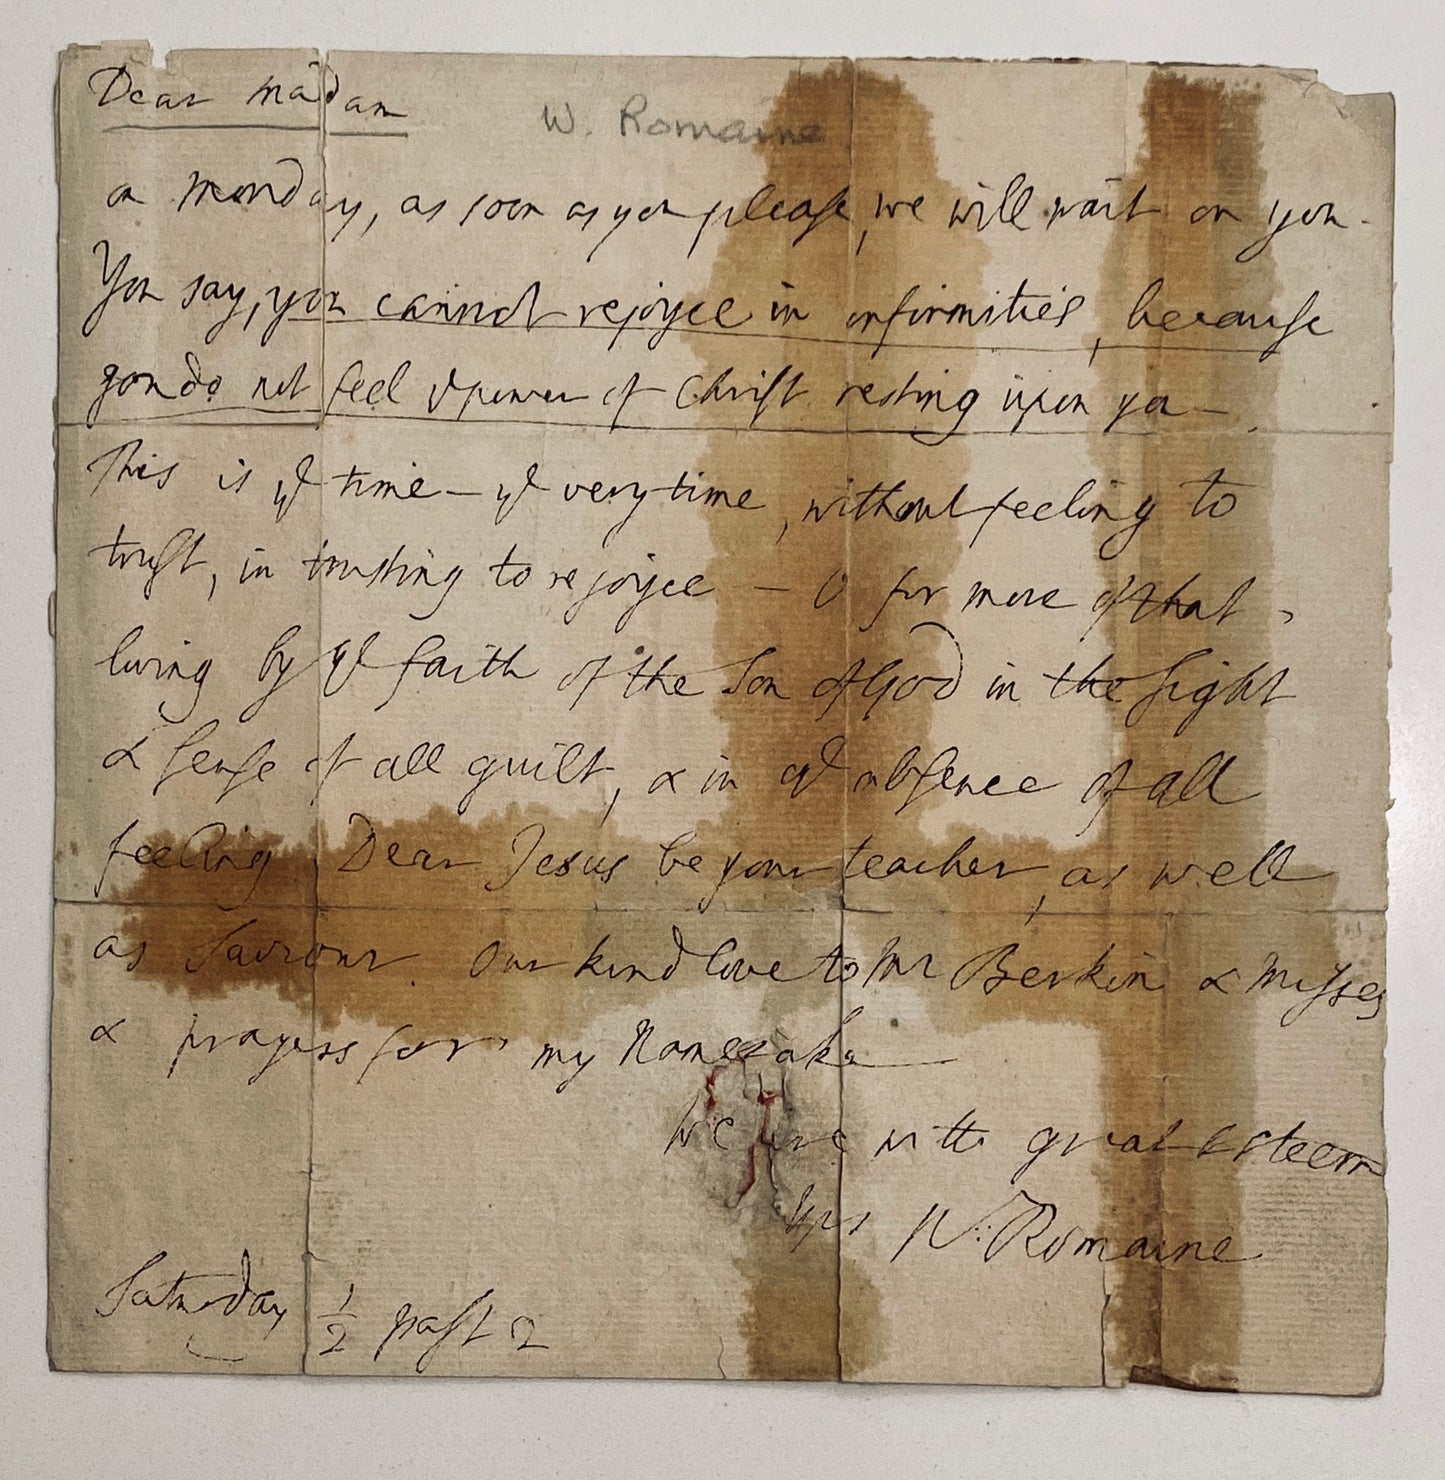 Dear Madam
W. Romaine
on Monday, as soon as you please, we will wait on you.
You say, you cannot rejoyce in infirmities, because
you do not feel ye power of Christ resting upon you —
This is ye time — ye very time, without feeling to
trust, in trusting to rejoyce — O for more of that
living by ye faith of the Son of God in the sight
& sense of all guilt, & in ye absence of all
feeling. Dear Jesus be your teacher, as well
as Saviour. Our kind love to Mr Berkin & Misses
& prayers for my Namesake —
We are with great esteem
Yrs W: Romaine
Saturday 1/2 past 2